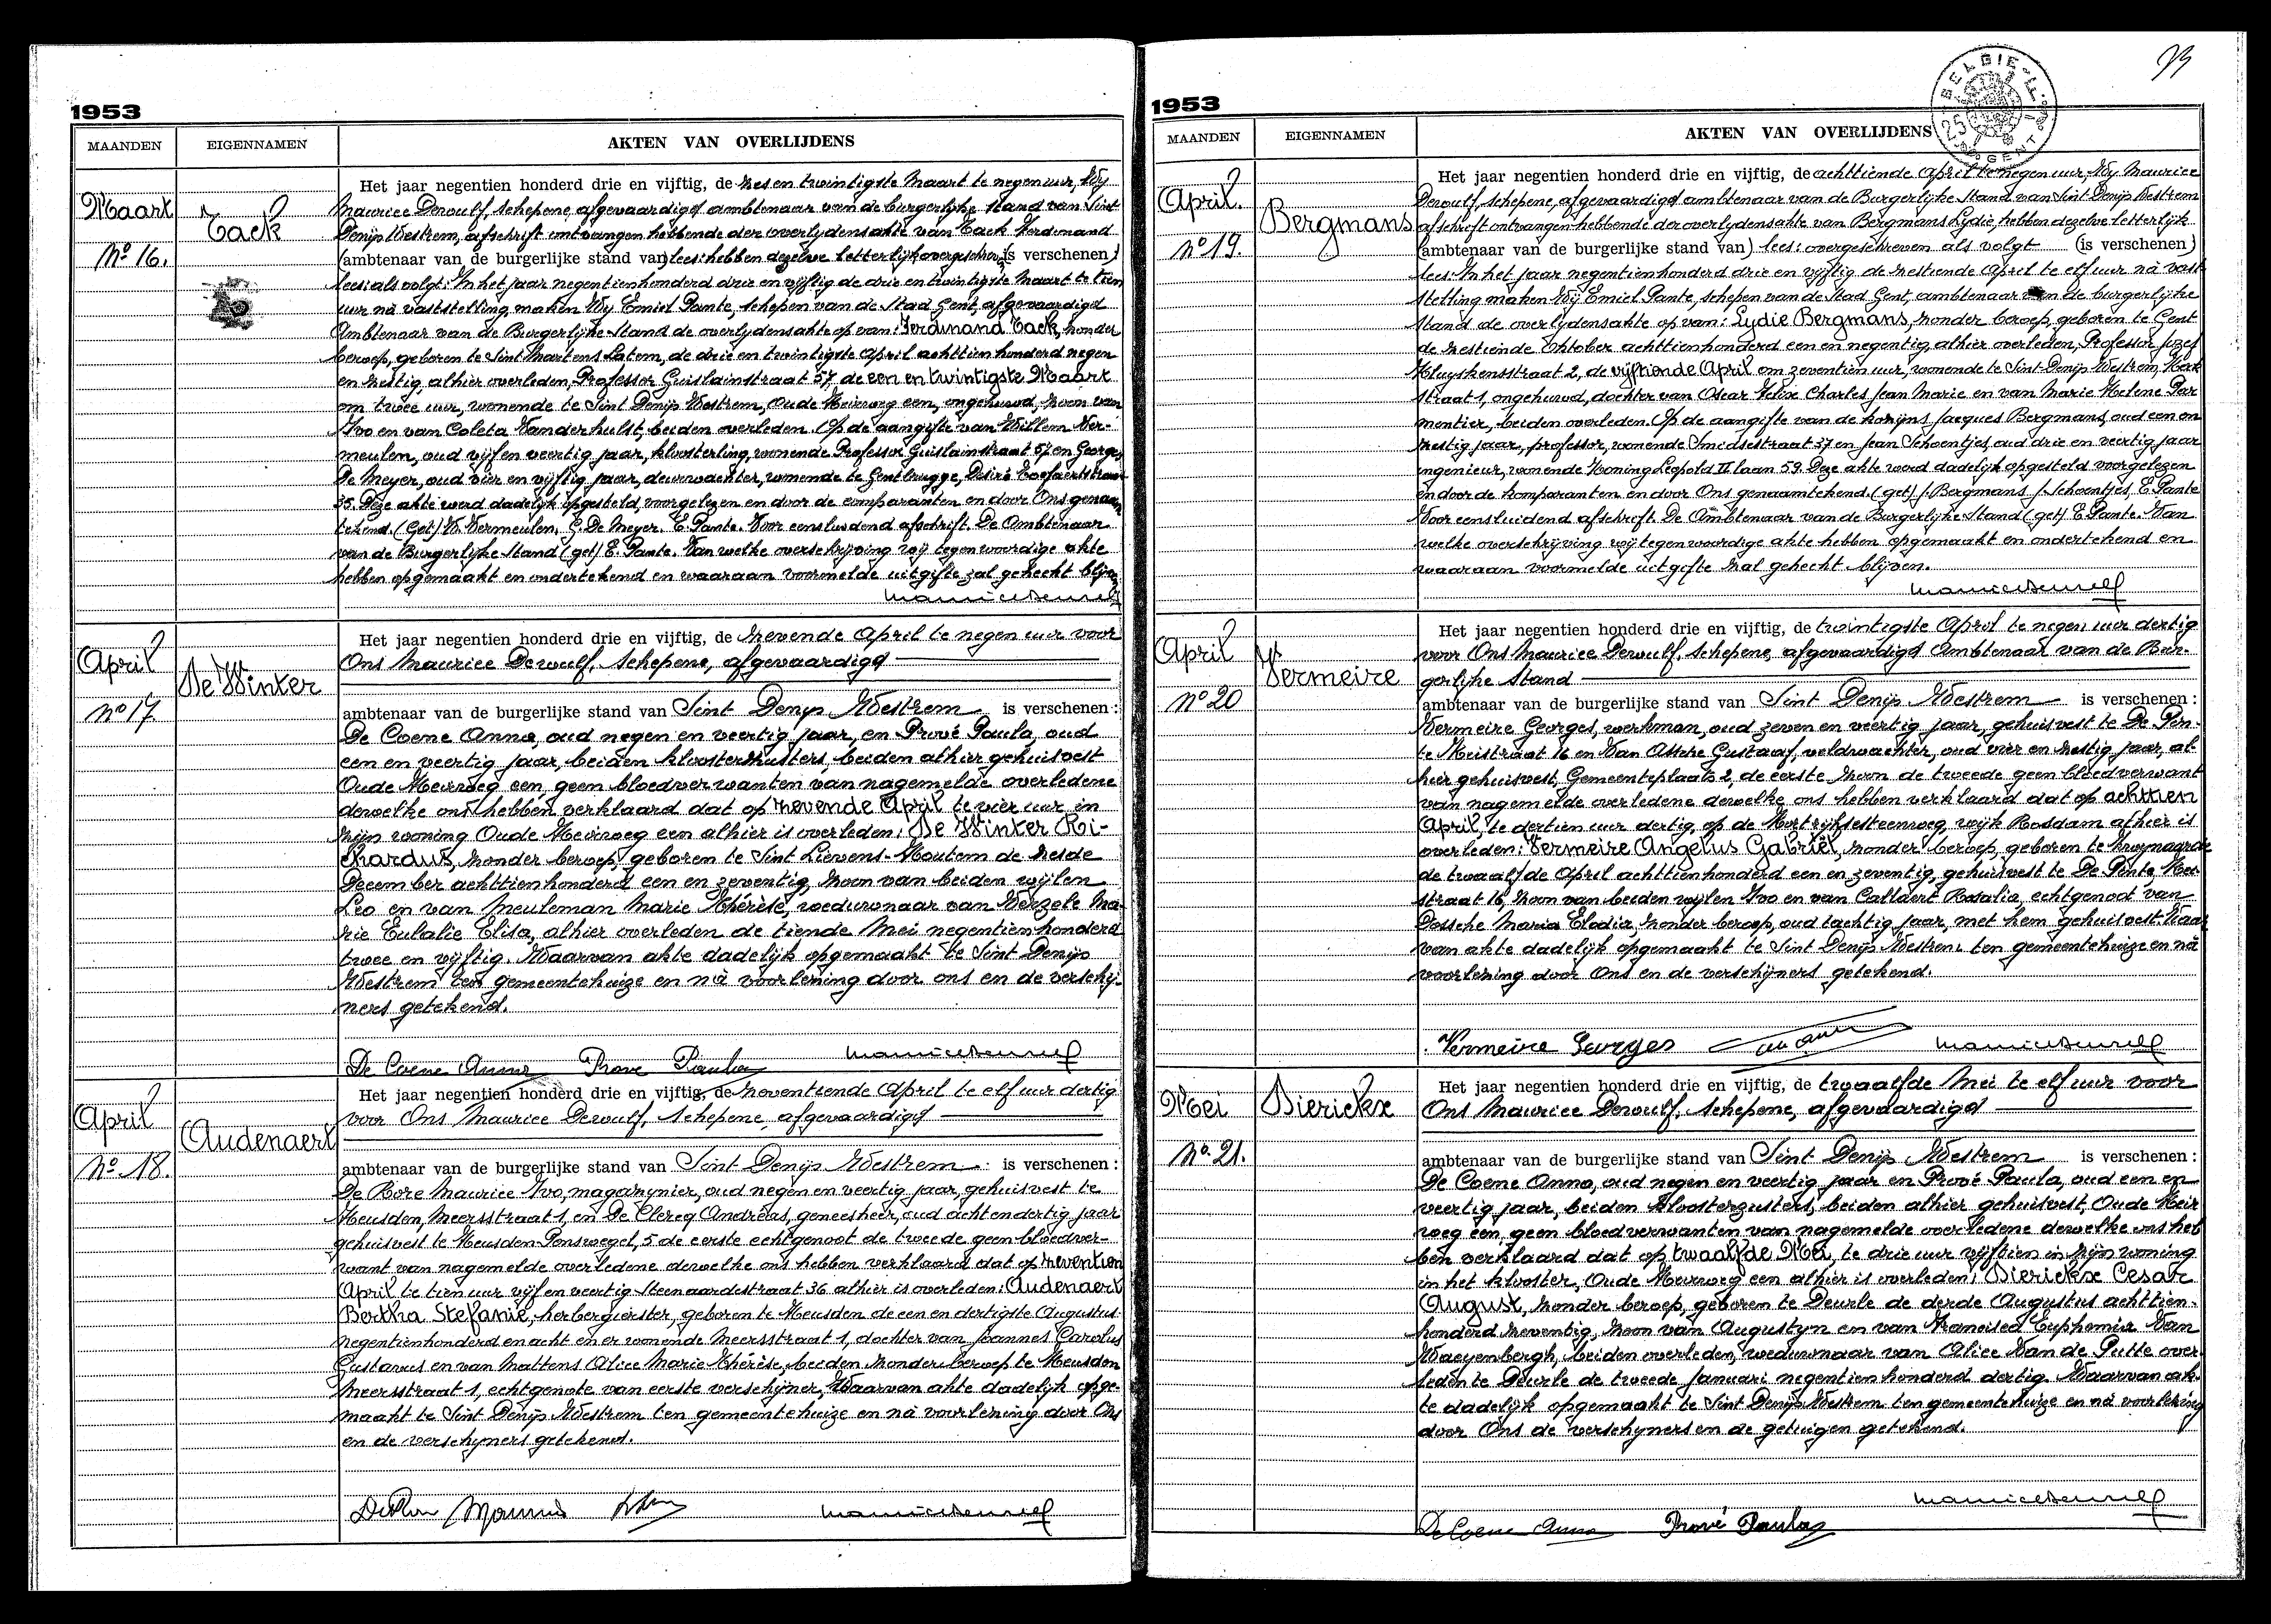 1953
MAANDEN EIGENNAMEN AKTEN VAN OVERLIJDENS
Maart
No 16.
Tack
Het jaar negentien honderd drie en vijftig, de zes en twintigste Maart te negen uur, Wy
Maurice Dewulf, schepene, afgevaardigd ambtenaar van de burgerlyke stand van Sint
Denijs Westrem, afschrift ontvangen hebbende der overlydensakte van Tack Ferdinand
(ambtenaar van de burgerlijke stand van) lees: hebben dezelve letterlijk overgeschreven (is verschenen)
lees: als volgt: In het jaar negentienhonderd drie en vijftig de drie en twintigste Maart te tien
uur nà vaststelling maken Wy Emiel Pante, schepen van de Stad Gent, afgevaardigd
Ambtenaar van de Burgerlijke Stand de overlydensakte op van: Ferdinand Tack, zonder
beroep, geboren te Sint Martens Latem, de drie en twintigste April achttien honderd negen
en zestig, alhier overleden, Professor Guislainstraat 57 de een en twintigste Maart
om twee uur, wonende te Sint Denijs Westrem, Oude Meirweg een, ongehuwd, zoon van
Ivo en van Coleta Vanderhulst, beiden overleden. Op de aangifte van Willem Ver-
meulen, oud vijf en veertig jaar, kloosterling, wonende Professor Guislainstraat 57 en Georges
De Meyer, oud vier en vijftig jaar, deurwachter, wonende te Gentbrugge, Désiré
35. Deze akte werd dadelijk opgesteld, voorgelezen en door de comparanten en door Ons genaam
tekend. (Get) W. Vermeulen. G. De Meyer. E. Pante. Voor eensluidend afschrift. De Ambtenaar
van de Burgerlijke Stand (get) E. Pante. Van welke overschrijving wij tegenwoordige akte
hebben opgemaakt en ondertekend en waaraan voormelde uitgifte zal gehecht blijven
Maurice Dewulf
April
No 17.
De Winter
Het jaar negentien honderd drie en vijftig, de zevende April te negen uur voor
Ons Maurice Dewulf, schepene, afgevaardigd
ambtenaar van de burgerlijke stand van Sint Denijs Westrem is verschenen:
De Coene Anna, oud negen en veertig jaar, en Prové Paula, oud
een en veertig jaar, beiden kloosterzusters, beiden alhier gehuisvest
Oude Meirweg een, geen bloedverwanten van nagemelde overledene
dewelke ons hebben verklaard dat op zevende April te vier uur in
zijn woning Oude Meirweg een alhier is overleden: De Winter Ri-
chardus, zonder beroep, geboren te Sint Lievens-Houtem de zesde
December achttienhonderd een en zeventig, zoon van beiden wijlen
Leo en van Meuleman Marie Thérèse, weduwnaar van Merzele Ma-
rie Eulalie Elisa, alhier overleden de tiende Mei negentienhonderd
twee en vijftig. Waarvan akte dadelijk opgemaakt te Sint Denijs
Westrem ten gemeentehuize en nà voorlezing door ons en de verschij-
ners getekend.
De Coene Anna Prove Paula Maurice Dewulf
April
No 18.
Audenaert
Het jaar negentien honderd drie en vijftig, de zeventiende April te elf uur dertig
voor Ons Maurice Dewulf, schepene, afgevaardigd
ambtenaar van de burgerlijke stand van Sint Denijs Westrem is verschenen:
De Rore Maurice Ivo, magazynier, oud negen en veertig jaar, gehuisvest te
Heusden, Meersstraat 1, en De Clercq Andreas, geneesheer, oud acht en dertig jaar
gehuisvest te Heusden Ponswegel, 5 de eerste echtgenoot de tweede geen bloedver-
want van nagemelde overledene dewelke ons hebben verklaard dat op zeventien
April te tien uur vijf en veertig Steenaardestraat 36 alhier is overleden: Audenaert
Bertha Stefanie, herbergierster, geboren te Heusden de een en dertigste Augustus
negentienhonderd en acht en er wonende Meersstraat 1, dochter van Joannes Carolus
Gustavus en van Mattens Alice Marie Thérèse, beiden zonder beroep te Heusden
Meersstraat 1, echtgenote van eerste verschijner, Waarvan akte dadelijk opge-
maakt te Sint Denijs Westrem ten gemeentehuize en nà voorlezing door Ons
en de verschyners getekend.
Maurice Dewulf
1953
MAANDEN EIGENNAMEN AKTEN VAN OVERLIJDENS
April.
No 19.
Bergmans
Het jaar negentien honderd drie en vijftig, de achttiende April te negen uur, Wy Maurice
Dewulf, schepene, afgevaardigd ambtenaar van de Burgerlyke Stand van Sint Denijs Westrem
afschrift ontvangen hebbende der overlydensakte van Bergmans Lydie, hebben dezelve letterlijk
(ambtenaar van de burgerlijke stand van) lees: overgeschreven als volgt (is verschenen)
lees: In het jaar negentienhonderd drie en vijftig de zestiende April te elf uur nà vast-
stelling maken Wij Emiel Pante, schepen van de Stad Gent, ambtenaar van de burgerlijke
stand de overlydensakte op van: Lydie Bergmans, zonder beroep, geboren te Gent
de zestiende Oktober achttienhonderd een en negentig, alhier overleden, Professor Jozef
Kluyskensstraat 2, de vijftiende April om zeventien uur, wonende te Sint-Denijs Westrem, Kerk
straat 1, ongehuwd, dochter van Oscar Felix Charles Jean Marie en van Marie Helene Par
mentier, beiden overleden. Op de aangifte van de kozijns Jacques Bergmans, oud een en
zestig jaar, professor, wonende Smedsestraat 37 en Jean Schoentjes, oud drie en veertig jaar
ingenieur, wonende Koning Leopold II laan 59. Deze akte werd dadelijk opgesteld voorgelezen
en door de komparanten en door Ons genaamtekend. (get) J. Bergmans J. Schoentjes, E. Pante
Voor eensluidend afschrift. De Ambtenaar van de Burgerlijke Stand (get) E. Pante. Van
welke overschrijving wij tegenwoordige akte hebben opgemaakt en ondertekend en
waaraan voormelde uitgifte zal gehecht blijven.
Maurice Dewulf
April
No 20
Vermeire
Het jaar negentien honderd drie en vijftig, de twintigste April te negen uur dertig
voor Ons Maurice Dewulf, schepene, afgevaardigd Ambtenaar van de Bur-
gerlijke Stand
ambtenaar van de burgerlijke stand van Sint Denijs Westrem is verschenen:
Vermeire Georges, werkman, oud zeven en veertig jaar, gehuisvest te De Pin-
te Keistraat 16 en Van Assche Gustaaf, veldwachter, oud vier en zestig jaar, al-
hier gehuisvest, Gemeenteplaats 2, de eerste zoon de tweede geen bloedverwant
van nagemelde overledene dewelke ons hebben verklaard dat op achttien
April, te dertien uur dertig, op de Kortrijksesteenweg, wijk Rosdam alhier is
overleden: Vermeire Angelus Gabriël, zonder beroep, geboren te Zwijnaarde
de twaalfde April achttienhonderd een en zeventig, gehuisvest te De Pinte, Kei-
straat 16, zoon van beiden wijlen Ivo en van Callaert Rosalia, echtgenoot van
Dossche Maria Elodia, zonder beroep, oud tachtig jaar, met hem gehuisvest. Waar
van akte dadelijk opgemaakt te Sint Denijs Westrem ten gemeentehuize en nà
voorlezing door Ons en de verschijners getekend.
Vermeire Georges Maurice Dewulf
Mei
No. 21.
Dierickx
Het jaar negentien honderd drie en vijftig, de twaalfde Mei te elf uur voor
Ons Maurice Dewulf, schepene, afgevaardigd
ambtenaar van de burgerlijke stand van Sint Denijs Westrem is verschenen:
De Coene Anna, oud negen en veertig jaar en Prové Paula, oud een en
veertig jaar, beiden kloosterzusters, beiden alhier gehuisvest, Oude Meir
weg een, geen bloedverwanten van nagemelde overledene dewelke ons heb
ben verklaard dat op twaalfde Mei, te drie uur vijftien in zijn woning
in het klooster, Oude Meirweg een alhier is overleden: Dierickx Cesar
August, zonder beroep, geboren te Deurle de derde Augustus achttien-
honderd zeventig, zoon van Augustyn en van Francisca Euphemia Van
Waeyenbergh, beiden overleden, weduwnaar van Alice Van de Putte over
leden te Deurle de tweede Januari negentienhonderd dertig. Waarvan ak-
te dadelijk opgemaakt te Sint Denijs Westrem ten gemeentehuize en nà voorlezing
door Ons de verschyners en de getuigen getekend.
Maurice Dewulf
De Coene Anna Prové Paula